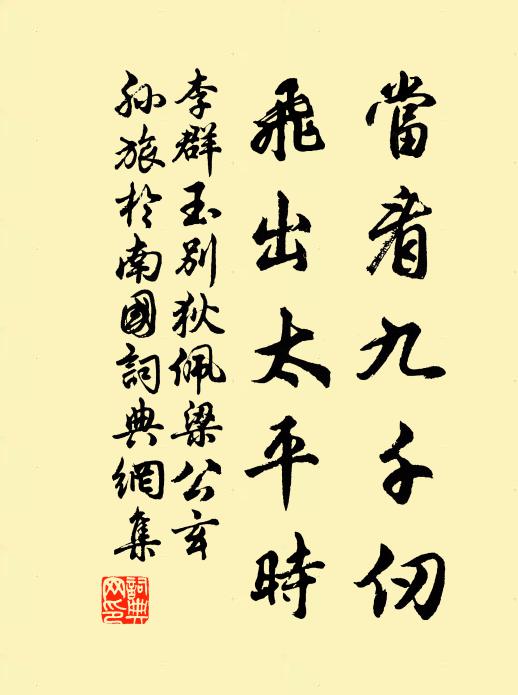 當看九千仞
飛出太平時
李群玉別狄佩梁公玄
孫旅於南國詞典網集
詞典網印